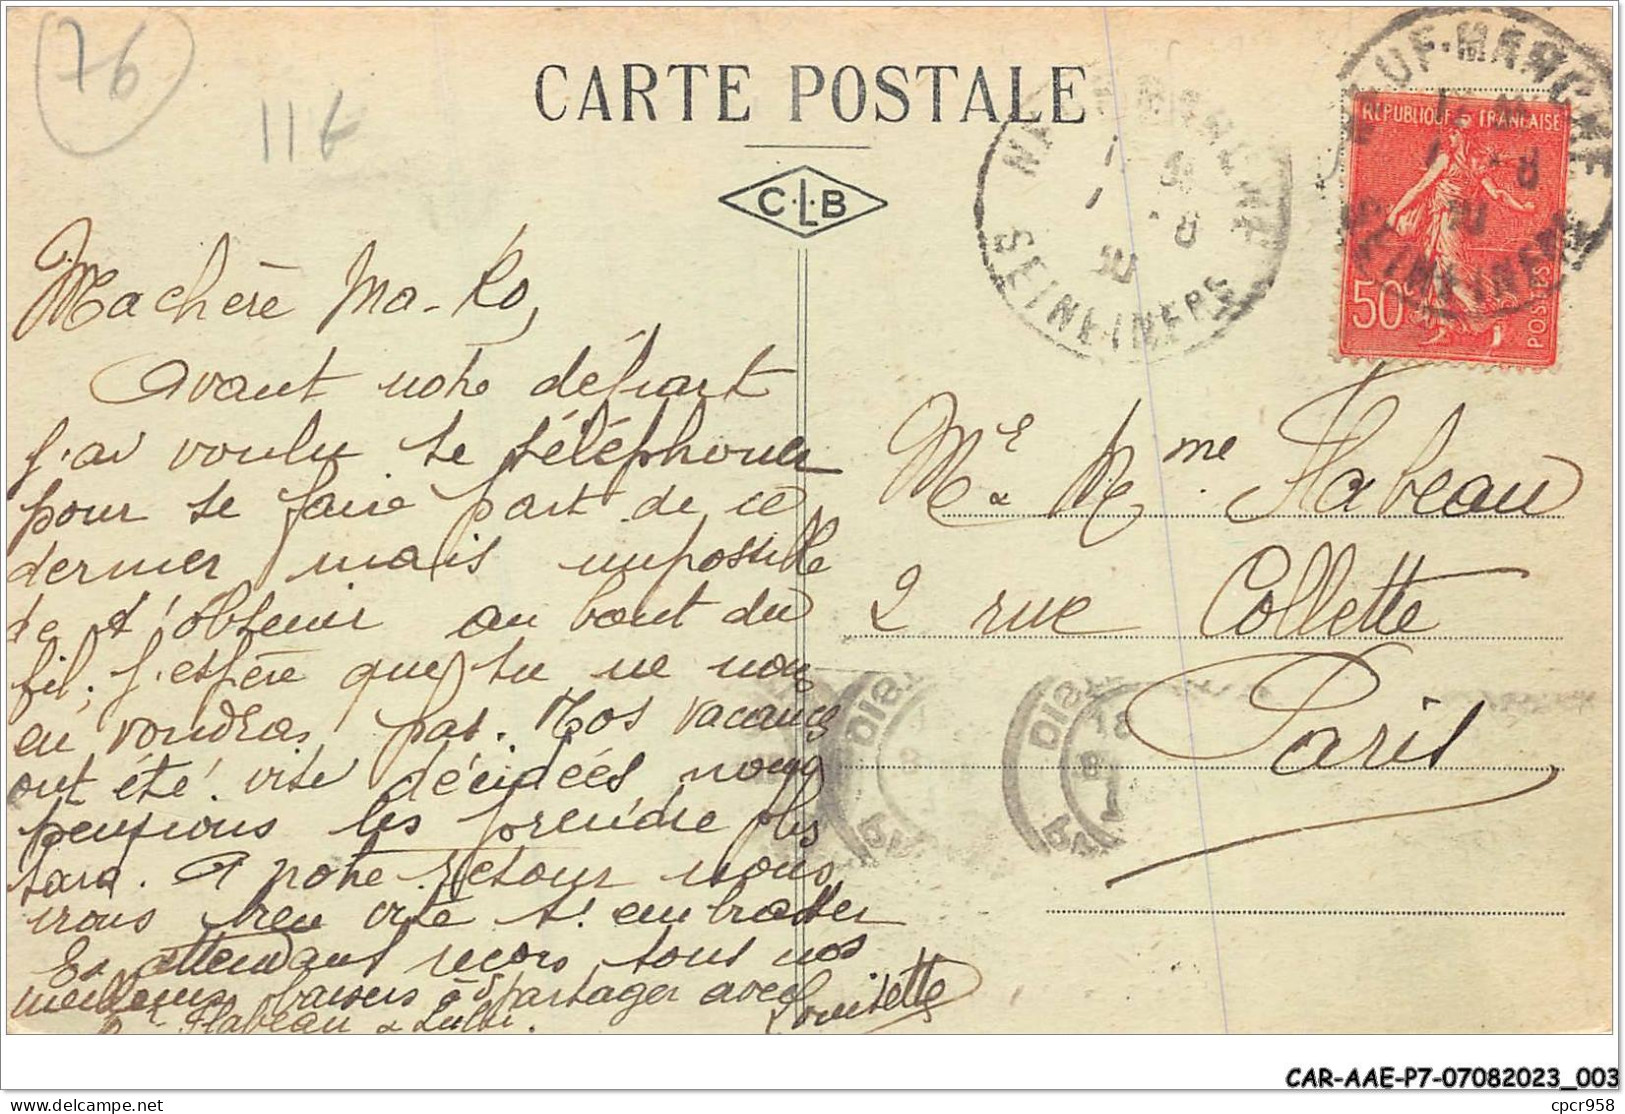 76
11€
CARTE POSTALE
C·L·B
REPUBLIQUE FRANÇAISE
50c
POSTES
NEUF-MARCHE
SEINE-INFRE
SEINE-INFRE
Ma chère Ma-Ko,
Avant notre départ
j'ai voulu te téléphoner
pour te faire part de ce
dernier mais impossible
de t'obtenir au bout du
fil; j'espère que tu ne nous
en voudras pas. Nos vacances
ont été vite décidées, nous
pensions les prendre plus
tard. A notre retour nous
irons bien vite t'embrasser
En attendant reçois tous nos
meilleurs baisers à partager avec
Mr Flabeau & Lulu.
Louisette
Mr & Mme Flabeau
2 rue Collette
Paris
CAR-AAE-P7-07082023_003
delcampe.net
cpcr958